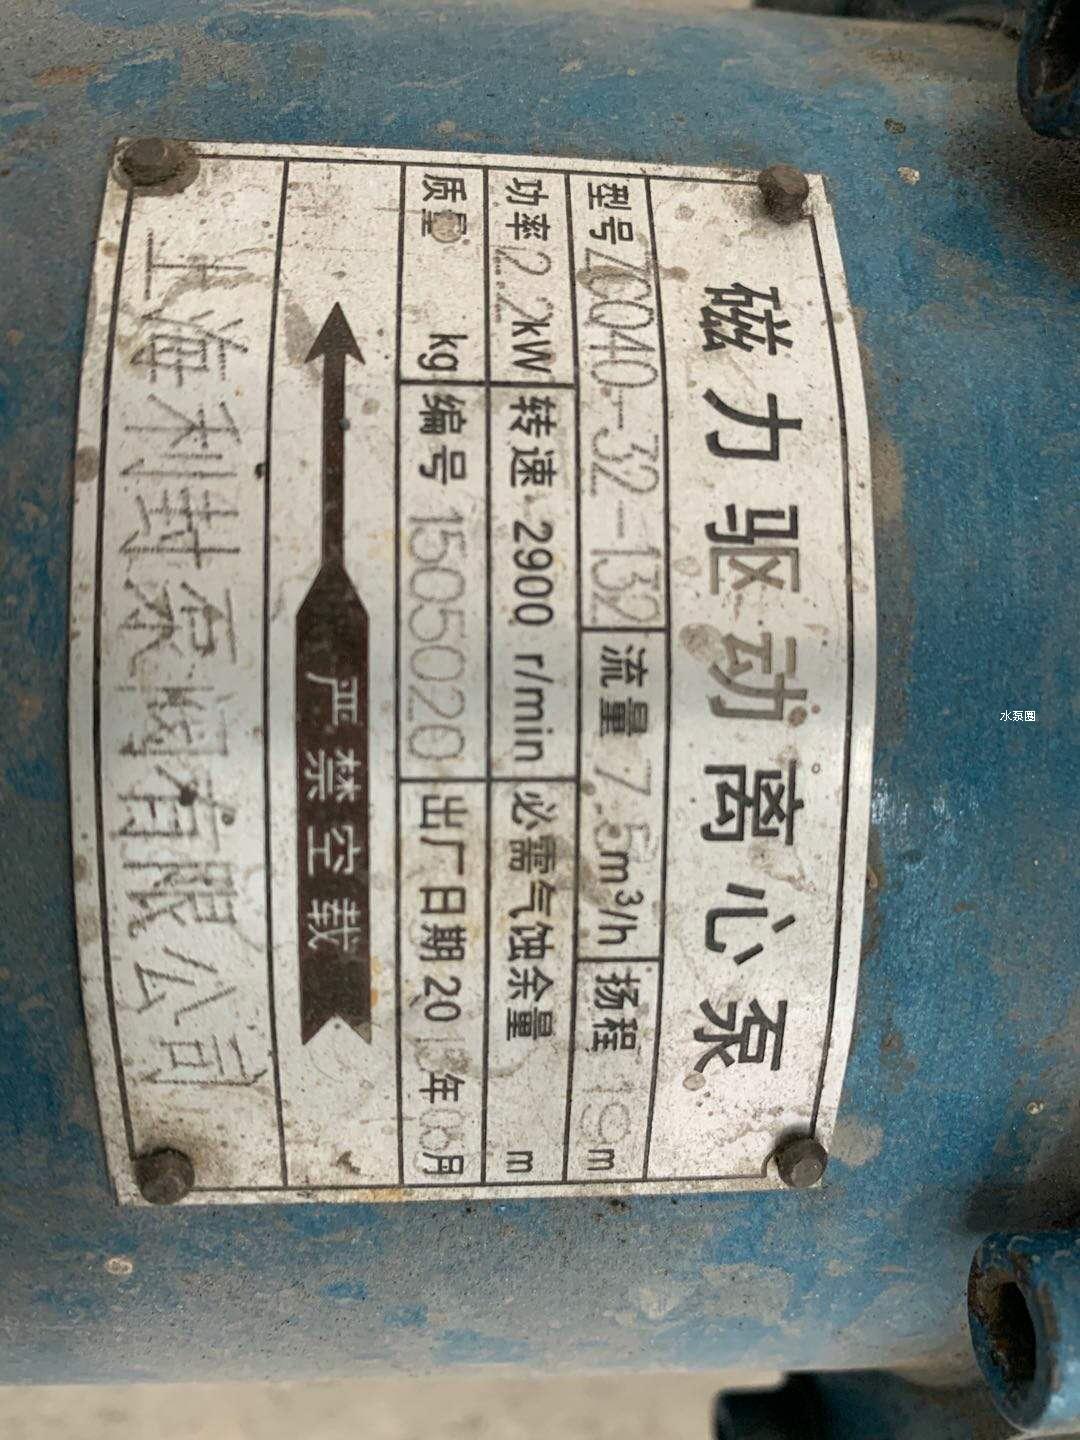 磁力驱动离心泵
型号ZCQ40-32-132 流量7.5m³/h 扬程19m
功率2.2kW 转速 2900 r/min 必需气蚀余量 m
质量 kg 编号 15050020 出厂日期2015年05月
严禁空载
上海利封泵阀有限公司
水泵圈